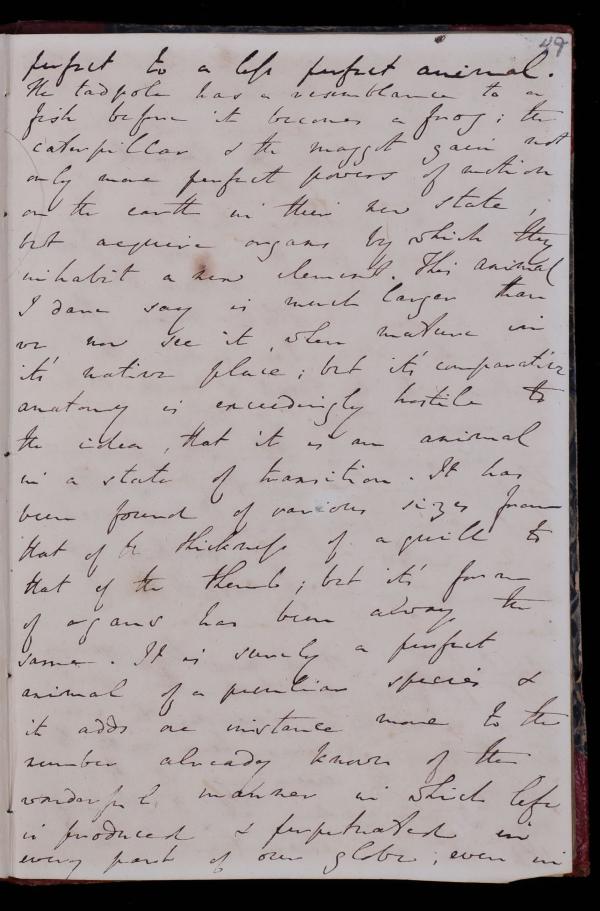 49
perfect to a less perfect animal.
The tadpole has a resemblance to a
fish before it becomes a frog; the
caterpillar & the maggot gain not
only more perfect powers of motion
on the earth in their new state,
but acquire organs by which they
inhabit a new element. This animal
I dare say is much larger than
we now see it, when mature in
it's native place; but it's comparative
anatomy is exceedingly hostile to
the idea, that it is an animal
in a state of transition. It has
been found of various sizes from
that of the thickness of a quill to
that of the thumb; but it's form
of organs has been always the
same. It is surely a perfect
animal of a peculiar species &
it adds one instance more to the
number already known of the
wonderful manner in which life
is produced & perpetuated in
every part of our globe, even in